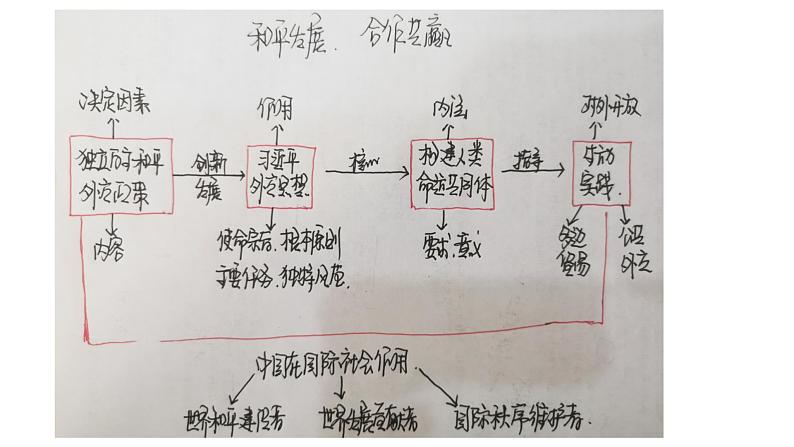 和平发展、合作共赢
决定因素
作用
内涵
对外开放
独立自主和平
外交政策
创新
发展
习近平
外交思想
核心
构建人类
命运共同体
指导
生动
实践
内容
使命宗旨、根本原则
主要任务、独特风范
要求、意义
多边
贸易
外交
中国在国际社会作用
世界和平建设者
世界发展贡献者
国际秩序维护者